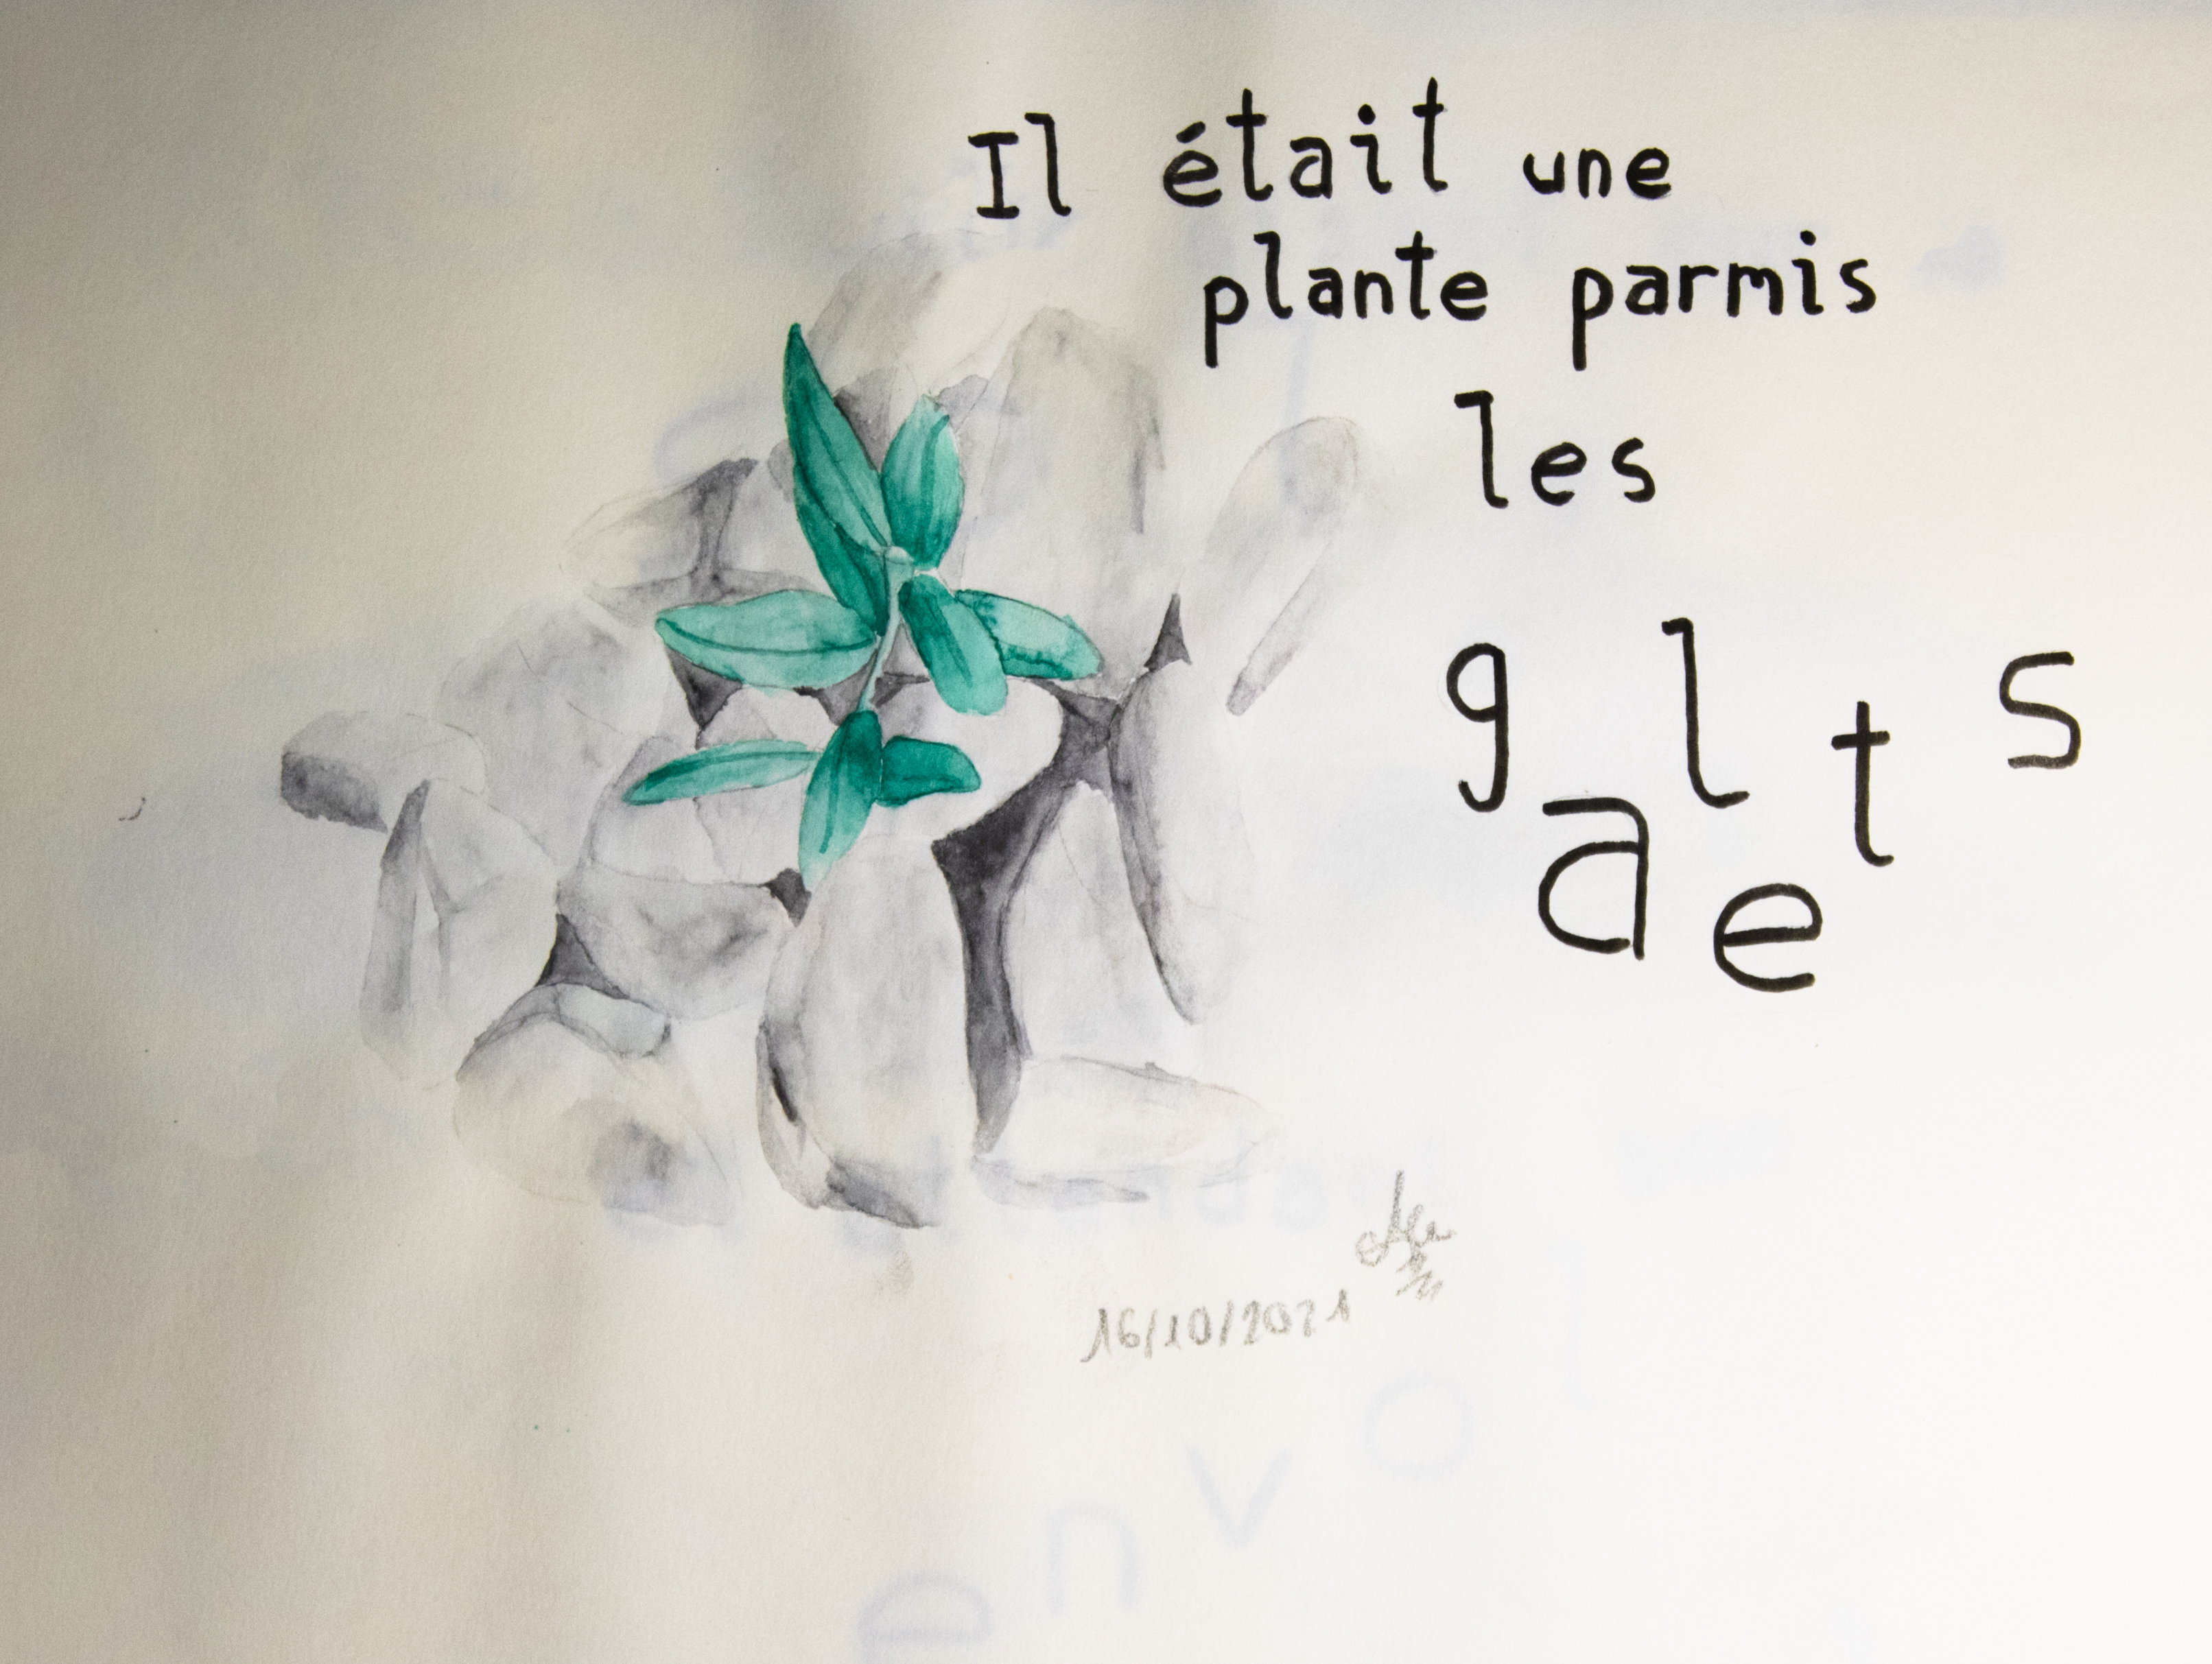 Il était une
plante parmis
les
galets
16/10/2021